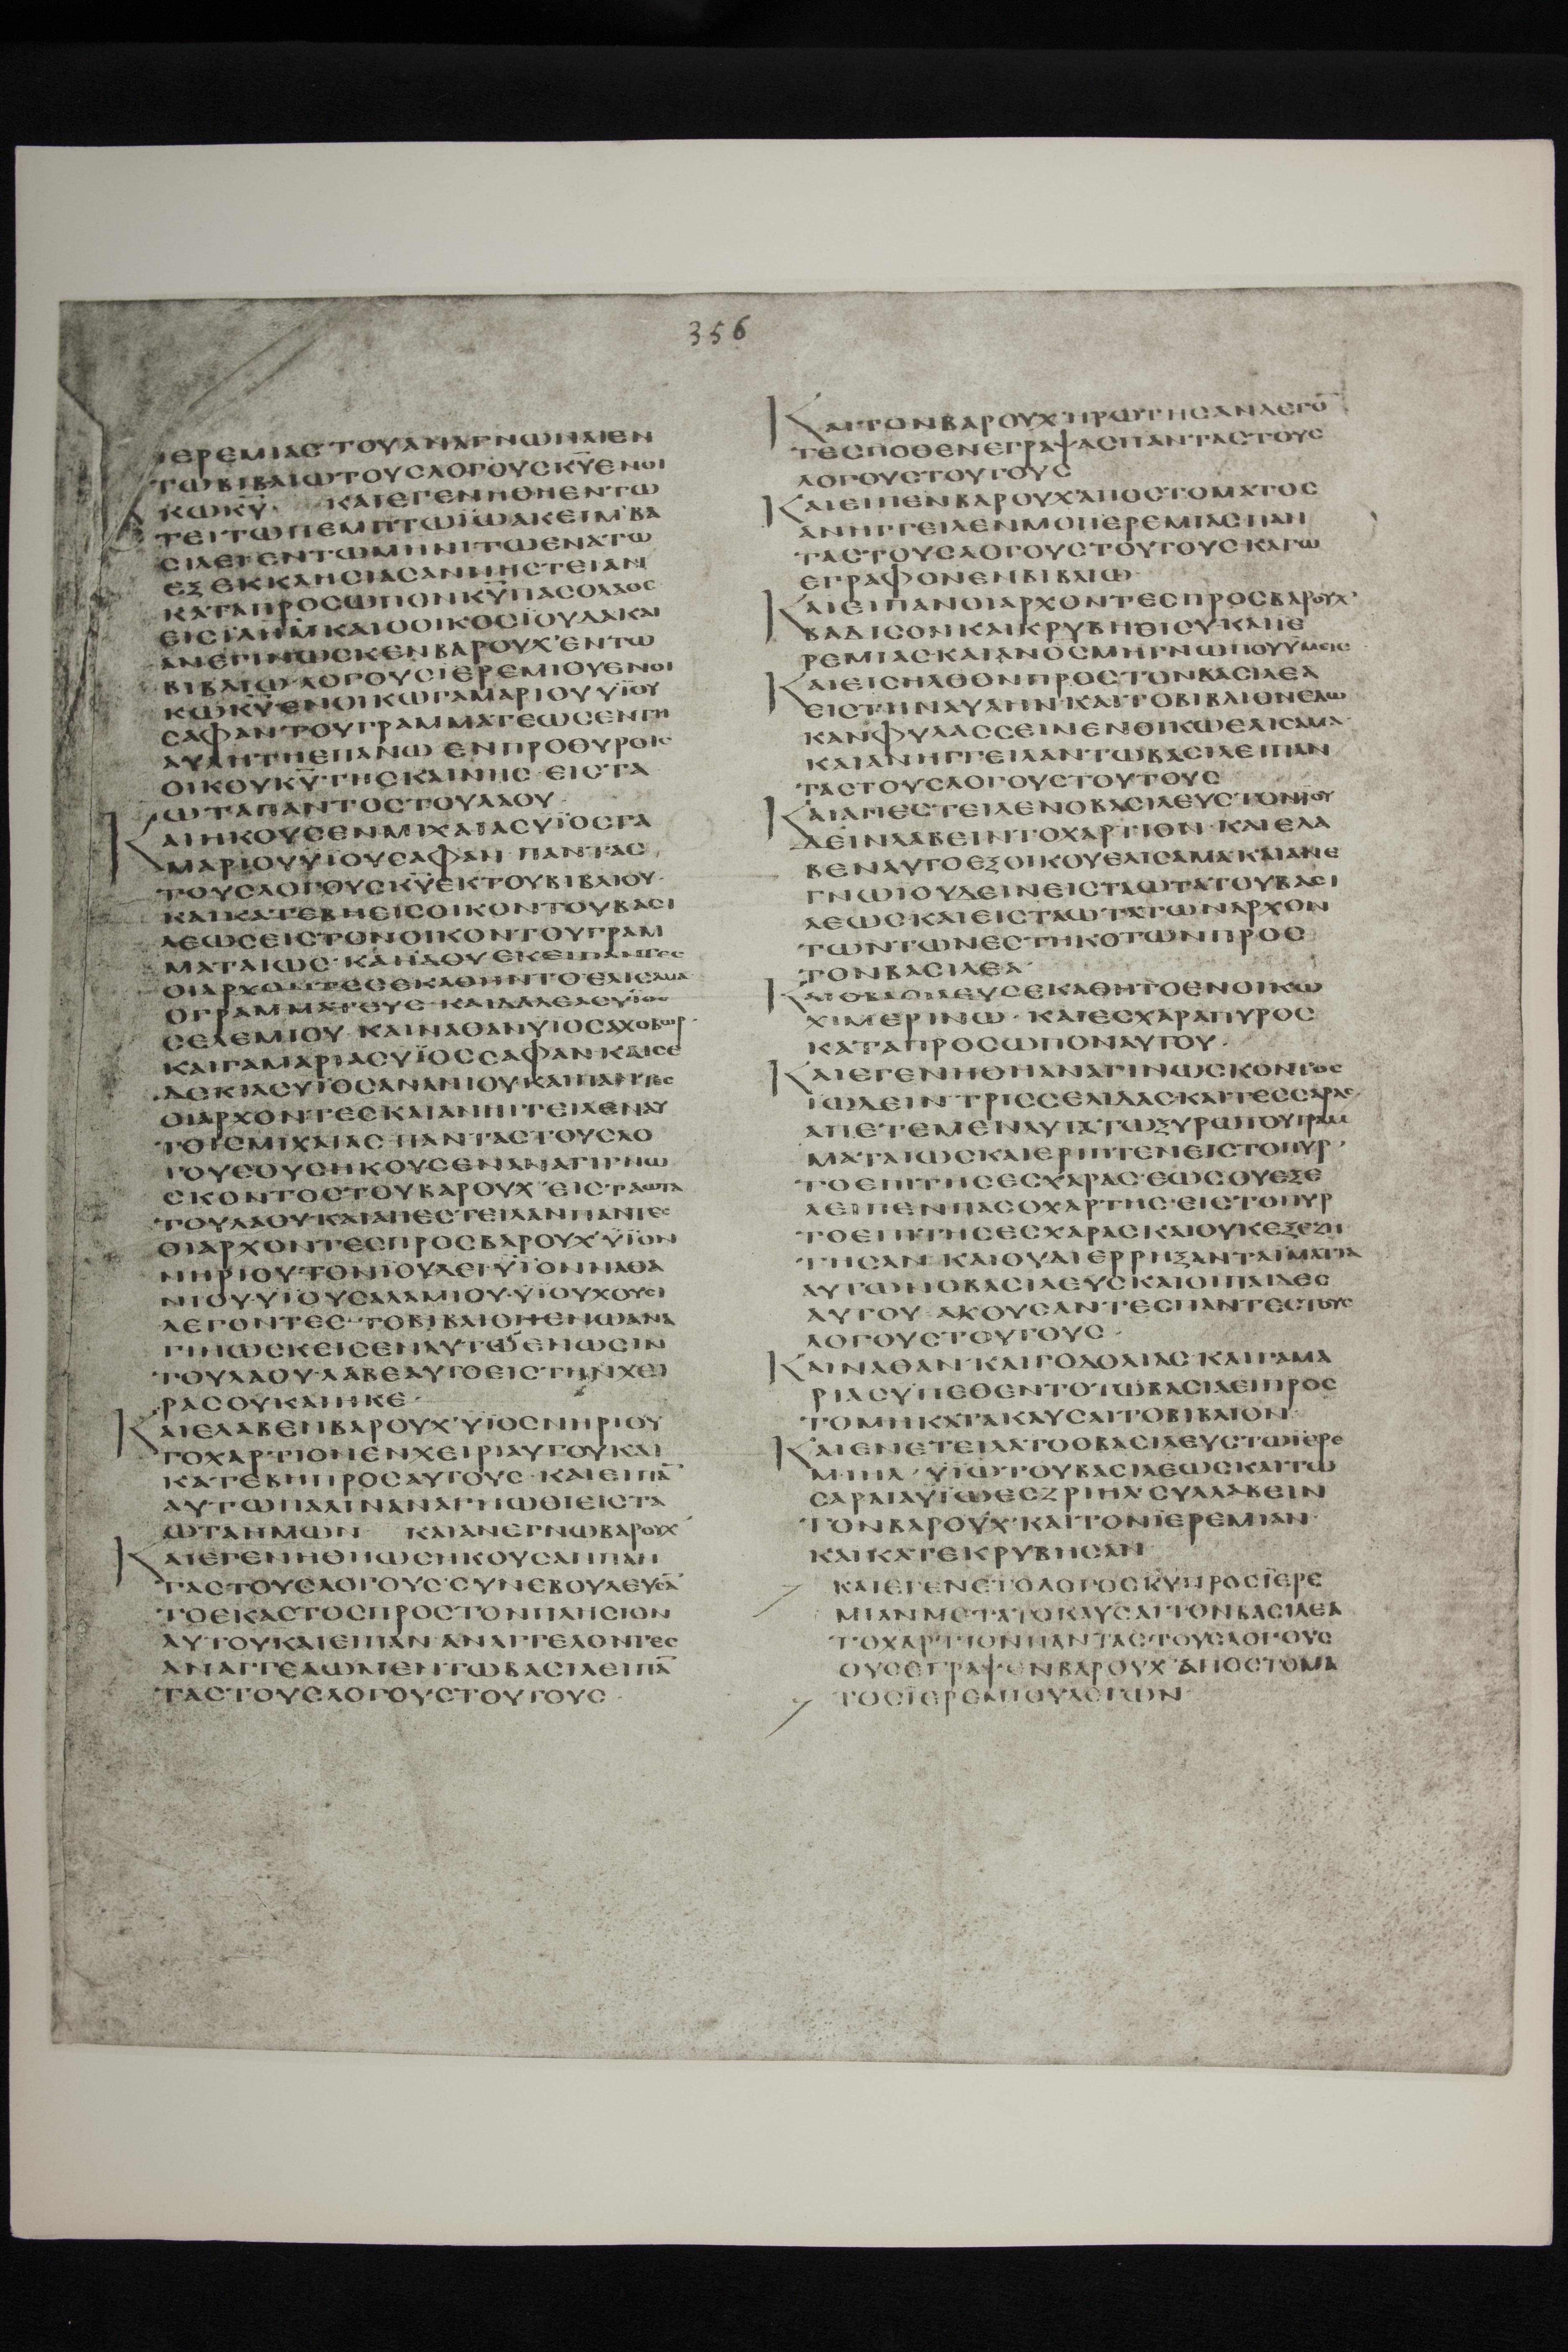 356
ΙΕΡΕΜΙΑΣ ΤΟΥ ΑΝΑΓΝΩΝΑΙ ΕΝ
ΤΩ ΒΙΒΛΙΩ ΤΟΥΣ ΛΟΓΟΥΣ ΚΥ ΕΝ ΟΙ
ΚΩ ΚΥ· ΚΑΙ ΕΓΕΝΗΘΗ ΕΝ ΤΩ
ΤΕΙ ΤΩ ΠΕΜΠΤΩ ΪΩΑΚΕΙΜ ΒΑ
ΣΙΛΕΙ ΕΝ ΤΩ ΜΗΝΙ ΤΩ ΕΝΑΤΩ
ΕΞΕΚΚΛΗΣΙΑΣΑΝ ΝΗΣΤΕΙΑΝ
ΚΑΤΑ ΠΡΟΣΩΠΟΝ ΚΥ ΠΑΣ Ο ΛΑΟΣ
ΕΙΣ ΪΛΗΜ ΚΑΙ Ο ΟΙΚΟΣ ΪΟΥΔΑ ΚΑΙ
ΑΝΕΓΙΝΩΣΚΕΝ ΒΑΡΟΥΧ ΕΝ ΤΩ
ΒΙΒΛΙΩ ΛΟΓΟΥΣ ΙΕΡΕΜΙΟΥ ΕΝ ΟΙ
ΚΩ ΚΥ ΕΝ ΟΙΚΩ ΓΑΜΑΡΙΟΥ ΥΪΟΥ
ΣΑΦΑΝ ΤΟΥ ΓΡΑΜΜΑΤΕΩΣ ΕΝ ΤΗ
ΑΥΛΗ ΤΗ ΕΠΑΝΩ ΕΝ ΠΡΟΘΥΡΟΙΣ
ΟΙΚΟΥ ΚΥ ΤΗΣ ΚΑΙΝΗΣ ΕΙΣ ΤΑ
ΩΤΑ ΠΑΝΤΟΣ ΤΟΥ ΛΑΟΥ
ΚΑΙ ΗΚΟΥΣΕΝ ΜΙΧΑΙΑΣ ΥΪΟΣ ΓΑ
ΜΑΡΙΟΥ ΥΪΟΥ ΣΑΦΑΝ ΠΑΝΤΑΣ
ΤΟΥΣ ΛΟΓΟΥΣ ΚΥ ΕΚ ΤΟΥ ΒΙΒΛΙΟΥ·
ΚΑΙ ΚΑΤΕΒΗ ΕΙΣ ΟΙΚΟΝ ΤΟΥ ΒΑΣΙ
ΛΕΩΣ ΕΙΣ ΤΟΝ ΟΙΚΟΝ ΤΟΥ ΓΡΑΜ
ΜΑΤΑΙΩΣ· ΚΑΙ ΙΔΟΥ ΕΚΕΙ ΠΑΝΤΕΣ
ΟΙ ΑΡΧΟΝΤΕΣ ΕΚΑΘΗΝΤΟ ΕΛΙΣΑΜΑ
Ο ΓΡΑΜΜΑΤΕΥΣ ΚΑΙ ΔΑΛΕΑΣ ΥΪΟΣ
ΣΕΛΕΜΙΟΥ ΚΑΙ ΝΑΘΑΝ ΥΙΟΣ ΑΧΟΒΩΡ·
ΚΑΙ ΓΑΜΑΡΙΑΣ ΥΪΟΣ ΣΑΦΑΝ ΚΑΙ ΣΕ
ΔΕΚΙΑΣ ΥΪΟΣ ΑΝΑΝΙΟΥ ΚΑΙ ΠΑΝΤΕΣ
ΟΙ ΑΡΧΟΝΤΕΣ ΚΑΙ ΑΝΗΓΓΕΙΛΕΝ ΑΥ
ΤΟΙΣ ΜΙΧΑΙΑΣ ΠΑΝΤΑΣ ΤΟΥΣ ΛΟ
ΓΟΥΣ ΟΥΣ ΗΚΟΥΣΕΝ ΑΝΑΓΙΓΝΩ
ΣΚΟΝΤΟΣ ΤΟΥ ΒΑΡΟΥΧ ΕΙΣ ΤΑ ΩΤΑ
ΤΟΥ ΛΑΟΥ· ΚΑΙ ΑΠΕΣΤΕΙΛΑΝ ΠΑΝΤΕΣ
ΟΙ ΑΡΧΟΝΤΕΣ ΠΡΟΣ ΒΑΡΟΥΧ ΥΪΟΝ
ΝΗΡΙΟΥ ΤΟΝ ΙΟΥΔΕΙ ΥΪΟΝ ΝΑΘΑ
ΝΙΟΥ ΥΪΟΥ ΣΑΛΑΜΙΟΥ ΥΪΟΥ ΧΟΥΣΙ
ΛΕΓΟΝΤΕΣ· ΤΟ ΒΙΒΛΙΟΝ ΕΝ Ω ΑΝΑ
ΓΙΝΩΣΚΕΙΣ ΕΝ ΑΥΤΩ ΕΝ ΩΣΙΝ
ΤΟΥ ΛΑΟΥ ΛΑΒΕ ΑΥΤΟ ΕΙΣ ΤΗΝ ΧΕΙ
ΡΑ ΣΟΥ ΚΑΙ ΗΚΕ·
ΚΑΙ ΕΛΑΒΕΝ ΒΑΡΟΥΧ ΥΪΟΣ ΝΗΡΙΟΥ
ΤΟ ΧΑΡΤΙΟΝ ΕΝ ΧΕΙΡΙ ΑΥΤΟΥ ΚΑΙ
ΚΑΤΕΒΗ ΠΡΟΣ ΑΥΤΟΥΣ· ΚΑΙ ΕΙΠᾹ
ΑΥΤΩ ΠΑΛΙΝ ΑΝΑΓΝΩΘΙ ΕΙΣ ΤΑ
ΩΤΑ ΗΜΩΝ ΚΑΙ ΑΝΕΓΝΩ ΒΑΡΟΥΧ
ΚΑΙ ΕΓΕΝΗΘΗ ΩΣ ΗΚΟΥΣΑΝ ΠΑΝ
ΤΑΣ ΤΟΥΣ ΛΟΓΟΥΣ ΣΥΝΕΒΟΥΛΕΥΣᾹ
ΤΟ ΕΚΑΣΤΟΣ ΠΡΟΣ ΤΟΝ ΠΛΗΣΙΟΝ
ΑΥΤΟΥ ΚΑΙ ΕΙΠΑΝ ΑΝΑΓΓΕΛΟΝΤΕΣ
ΑΝΑΓΓΕΛΩΜΕΝ ΤΩ ΒΑΣΙΛΕΙ ΠᾹ
ΤΑΣ ΤΟΥΣ ΛΟΓΟΥΣ ΤΟΥΤΟΥΣ·
ΚΑΙ ΤΟΝ ΒΑΡΟΥΧ ΗΡΩΤΗΣΑΝ ΛΕΓΟ̄
ΤΕΣ ΠΟΘΕΝ ΕΓΡΑΨΑΣ ΠΑΝΤΑΣ ΤΟΥΣ
ΛΟΓΟΥΣ ΤΟΥΤΟΥΣ
ΚΑΙ ΕΙΠΕΝ ΒΑΡΟΥΧ ΑΠΟ ΣΤΟΜΑΤΟΣ
ΑΝΗΓΓΕΙΛΕΝ ΜΟΙ ΙΕΡΕΜΙΑΣ ΠΑΝ
ΤΑΣ ΤΟΥΣ ΛΟΓΟΥΣ ΤΟΥΤΟΥΣ ΚΑΙ Ω
ΕΓΡΑΦΟΝ ΕΝ ΒΙΒΛΙΩ·
ΚΑΙ ΕΙΠΑΝ ΟΙ ΑΡΧΟΝΤΕΣ ΠΡΟΣ ΒΑΡΟΥΧ
ΒΑΔΙΣΟΝ ΚΑΙ ΚΡΥΒΗΘΙ ΣΥ ΚΑΙ ΙΕ
ΡΕΜΙΑΣ ΚΑΙ ΑΝΟΣ ΜΗ ΓΝΩ ΠΟΥ ΥΜΕΙΣ
ΚΑΙ ΕΙΣΗΛΘΟΝ ΠΡΟΣ ΤΟΝ ΒΑΣΙΛΕΑ
ΕΙΣ ΤΗΝ ΑΥΛΗΝ ΚΑΙ ΤΟ ΒΙΒΛΙΟΝ ΕΔΩ
ΚΑΝ ΦΥΛΑΣΣΕΙΝ ΕΝ ΟΙΚΩ ΕΛΙΣΑΜΑ·
ΚΑΙ ΑΝΗΓΓΕΙΛΑΝ ΤΩ ΒΑΣΙΛΕΙ ΠΑΝ
ΤΑΣ ΤΟΥΣ ΛΟΓΟΥΣ ΤΟΥΤΟΥΣ
ΚΑΙ ΑΠΕΣΤΕΙΛΕΝ Ο ΒΑΣΙΛΕΥΣ ΤΟΝ ΪΟΥ
ΔΕΙΝ ΛΑΒΕΙΝ ΤΟ ΧΑΡΤΙΟΝ· ΚΑΙ ΕΛΑ
ΒΕΝ ΑΥΤΟ ΕΞ ΟΙΚΟΥ ΕΛΙΣΑΜΑ ΚΑΙ ΑΝΕ
ΓΝΩ ΪΟΥΔΕΙΝ ΕΙΣ ΤΑ ΩΤΑ ΤΟΥ ΒΑΣΙ
ΛΕΩΣ ΚΑΙ ΕΙΣ ΤΑ ΩΤΑ ΤΩΝ ΑΡΧΟΝ
ΤΩΝ ΤΩΝ ΕΣΤΗΚΟΤΩΝ ΠΡΟΣ
ΤΟΝ ΒΑΣΙΛΕΑ·
ΚΑΙ Ο ΒΑΣΙΛΕΥΣ ΕΚΑΘΗΤΟ ΕΝ ΟΙΚΩ
ΧΙΜΕΡΙΝΩ· ΚΑΙ ΕΣΧΑΡΑ ΠΥΡΟΣ
ΚΑΤΑ ΠΡΟΣΩΠΟΝ ΑΥΤΟΥ·
ΚΑΙ ΕΓΕΝΗΘΗ ΑΝΑΓΙΝΩΣΚΟΝΤΟΣ
ΪΩΔΕΙΝ ΤΡΙΣ ΣΕΛΙΔΑΣ ΚΑΙ ΤΕΣΣΑΡΑΣ
ΑΠΕΤΕΜΕΝ ΑΥΤΑ ΤΩ ΞΥΡΩ ΤΟΥ ΓΡΑΜ
ΜΑΤΑΙΩΣ ΚΑΙ ΕΡΙΠΤΕΝ ΕΙΣ ΤΟ ΠΥΡ
ΤΟ ΕΠΙ ΤΗΣ ΕΣΧΑΡΑΣ ΕΩΣ ΟΥ ΕΞΕ
ΛΕΙΠΕΝ ΠΑΣ Ο ΧΑΡΤΗΣ ΕΙΣ ΤΟ ΠΥΡ
ΤΟ ΕΠΙ ΤΗΣ ΕΣΧΑΡΑΣ ΚΑΙ ΟΥΚ ΕΞΕΖΗ
ΤΗΣΑΝ ΚΑΙ ΟΥ ΔΙΕΡΡΗΞΑΝ ΤΑ ΪΜΑΤΙΑ
ΑΥΤΩΝ Ο ΒΑΣΙΛΕΥΣ ΚΑΙ ΟΙ ΠΑΙΔΕΣ
ΑΥΤΟΥ ΑΚΟΥΣΑΝΤΕΣ ΠΑΝΤΕΣ ΤΟΥΣ
ΛΟΓΟΥΣ ΤΟΥΤΟΥΣ·
ΚΑΙ ΝΑΘΑΝ ΚΑΙ ΓΟΔΟΛΙΑΣ ΚΑΙ ΓΑΜΑ
ΡΙΑΣ ΥΠΕΘΕΝΤΟ ΤΩ ΒΑΣΙΛΕΙ ΠΡΟΣ
ΤΟ ΜΗ ΚΑΤΑΚΑΥΣΑΙ ΤΟ ΒΙΒΛΙΟΝ·
ΚΑΙ ΕΝΕΤΕΙΛΑΤΟ Ο ΒΑΣΙΛΕΥΣ ΤΩ ΪΕΡΕ
ΜΙΗΛ ΥΪΩ ΤΟΥ ΒΑΣΙΛΕΩΣ ΚΑΙ ΤΩ
ΣΑΡΑΙΑ ΥΪΩ ΕΣΖΡΙΗΛ ΣΥΛΛΑΒΕΙΝ
ΤΟΝ ΒΑΡΟΥΧ ΚΑΙ ΤΟΝ ΪΕΡΕΜΙΑΝ·
ΚΑΙ ΚΑΤΕΚΡΥΒΗΣΑΝ
ΚΑΙ ΕΓΕΝΕΤΟ ΛΟΓΟΣ ΚΥ ΠΡΟΣ ΪΕΡΕ
ΜΙΑΝ ΜΕΤΑ ΤΟ ΚΑΥΣΑΙ ΤΟΝ ΒΑΣΙΛΕΑ
ΤΟ ΧΑΡΤΙΟΝ ΠΑΝΤΑΣ ΤΟΥΣ ΛΟΓΟΥΣ
ΟΥΣ ΕΓΡΑΨΕΝ ΒΑΡΟΥΧ ΑΠΟ ΣΤΟΜΑ
ΤΟΣ ΪΕΡΕΜΙΟΥ ΛΕΓΩΝ